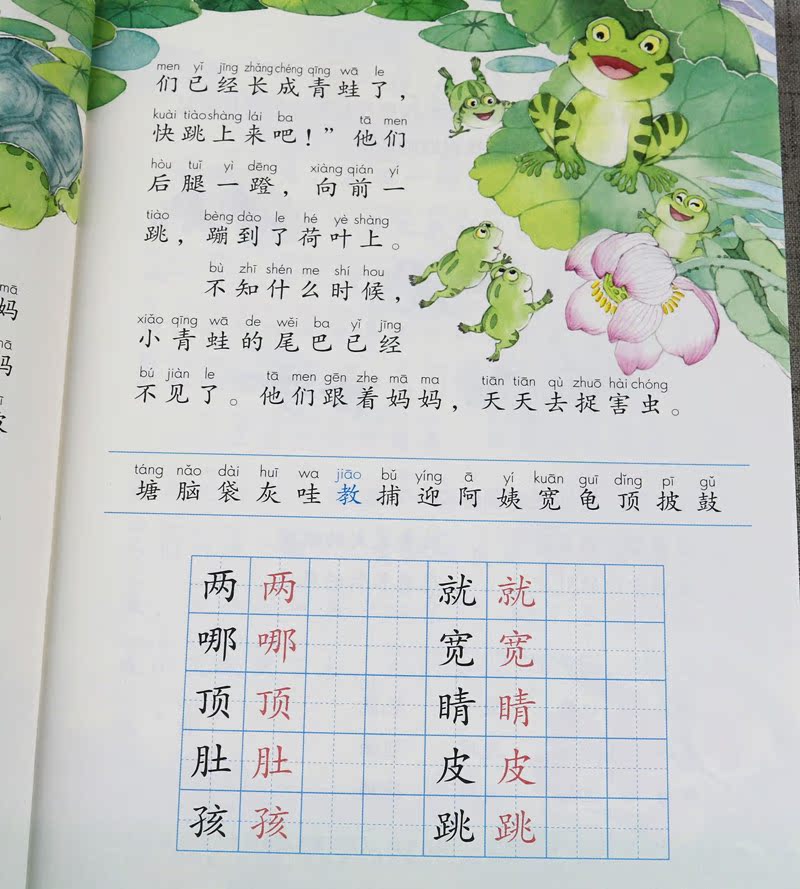 mā
妈
mā
妈
皮
men yǐ jīng zhǎng chéng qīng wā le
们已经长成青蛙了，
kuài tiào shàng lái ba tā men
快跳上来吧！”他们
hòu tuǐ yi dēng xiàng qián yí
后腿一蹬，向前一
tiào bèng dào le hé yè shàng
跳，蹦到了荷叶上。
bù zhī shén me shí hou
不知什么时候，
xiǎo qīng wā de wěi ba yǐ jīng
小青蛙的尾巴已经
bú jiàn le tā men gēn zhe mā ma tiān tiān qù zhuō hài chóng
不见了。他们跟着妈妈，天天去捉害虫。
táng nǎo dài huī wa jiāo bǔ yíng ā yí kuān guī dǐng pī gǔ
塘脑袋灰哇教捕迎阿姨宽龟顶披鼓
两两 就就
哪哪 宽宽
顶顶 睛睛
肚肚 皮皮
孩孩 跳跳